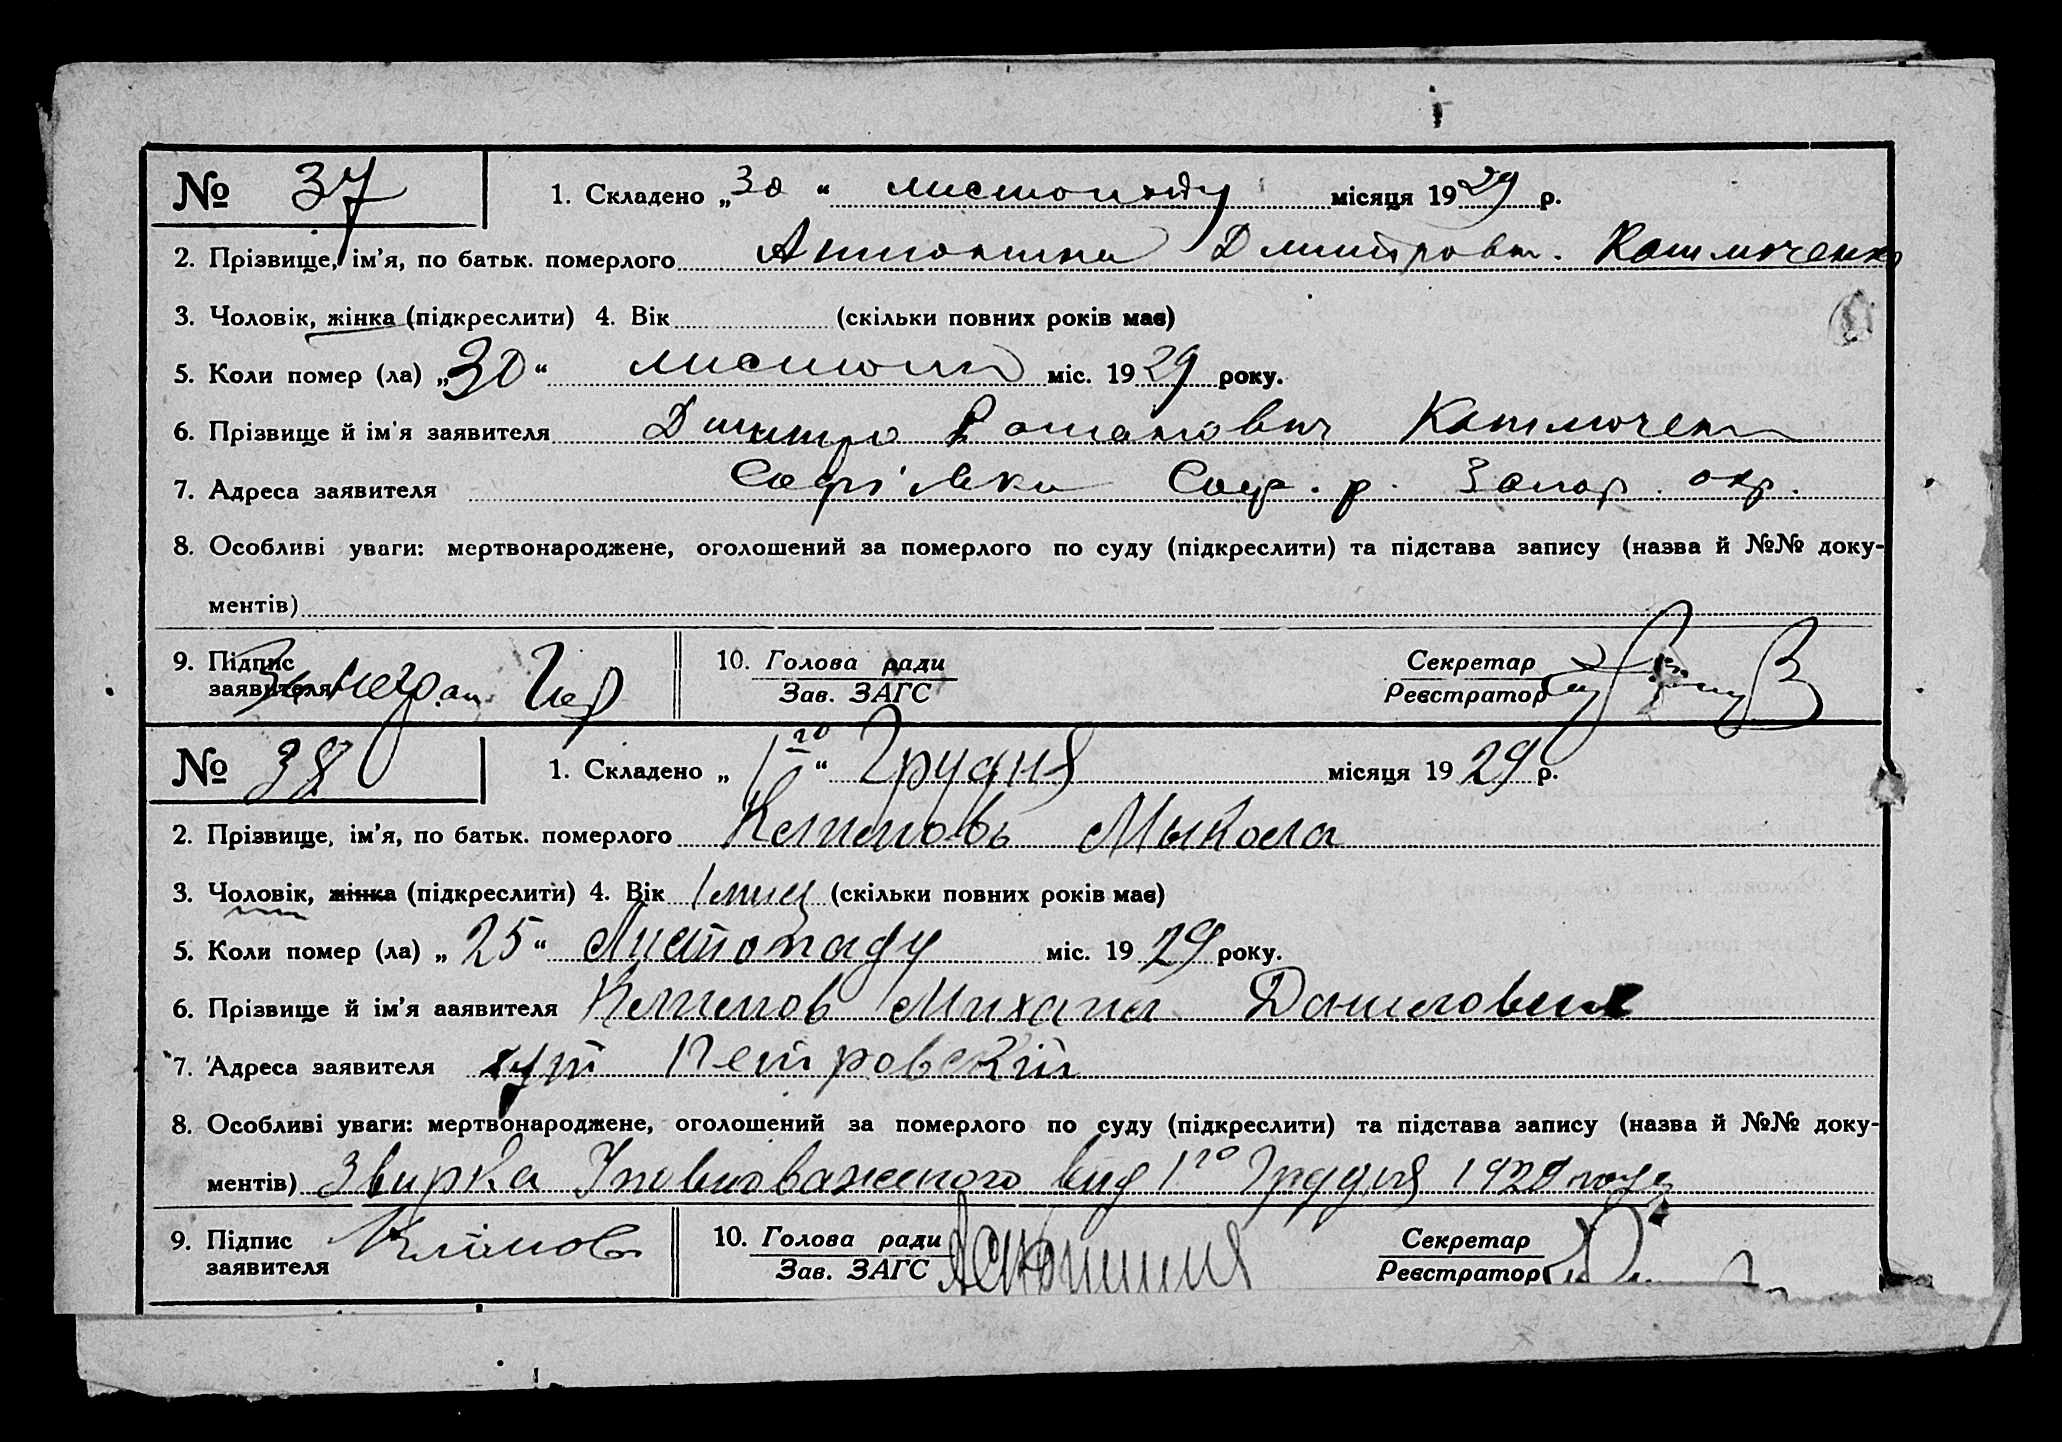 № 37 1. Складено „30“ листопаду місяця 1929 р.
2. Прізвище, ім'я, по батьк. померлого Антонина Дмитровн.
3. Чоловік, жінка (підкреслити) 4. Вік (скільки повних років має)
5. Коли помер (ла) „30“ листопа міс. 1929 року.
6. Прізвище й ім'я заявителя Дмитро Романович
7. Адреса заявителя Софіївка Соф. р. Запор. окр.
8. Особливі уваги: мертвонароджене, оголошений за померлого по суду (підкреслити) та підстава запису (назва й №№ доку-
ментів)
9. Підпис 10. Голова ради Секретар
заявителя Зав. ЗАГС Реєстратор
№ 38 1. Складено „1го“ Грудня місяця 1929 р.
2. Прізвище, ім'я, по батьк. померлого Мыкола
3. Чоловік, жінка (підкреслити) 4. Вік 1 мисц (скільки повних років має)
5. Коли помер (ла) „25“ Листопаду міс. 1929 року.
6. Прізвище й ім'я заявителя Михаил Данилович
7. Адреса заявителя хут Петровский
8. Особливі уваги: мертвонароджене, оголошений за померлого по суду (підкреслити) та підстава запису (назва й №№ доку-
ментів) Звирка Уповноваженого вид 1го Грудня 1929 року
9. Підпис Климов 10. Голова ради Секретар
заявителя Зав. ЗАГС Реєстратор